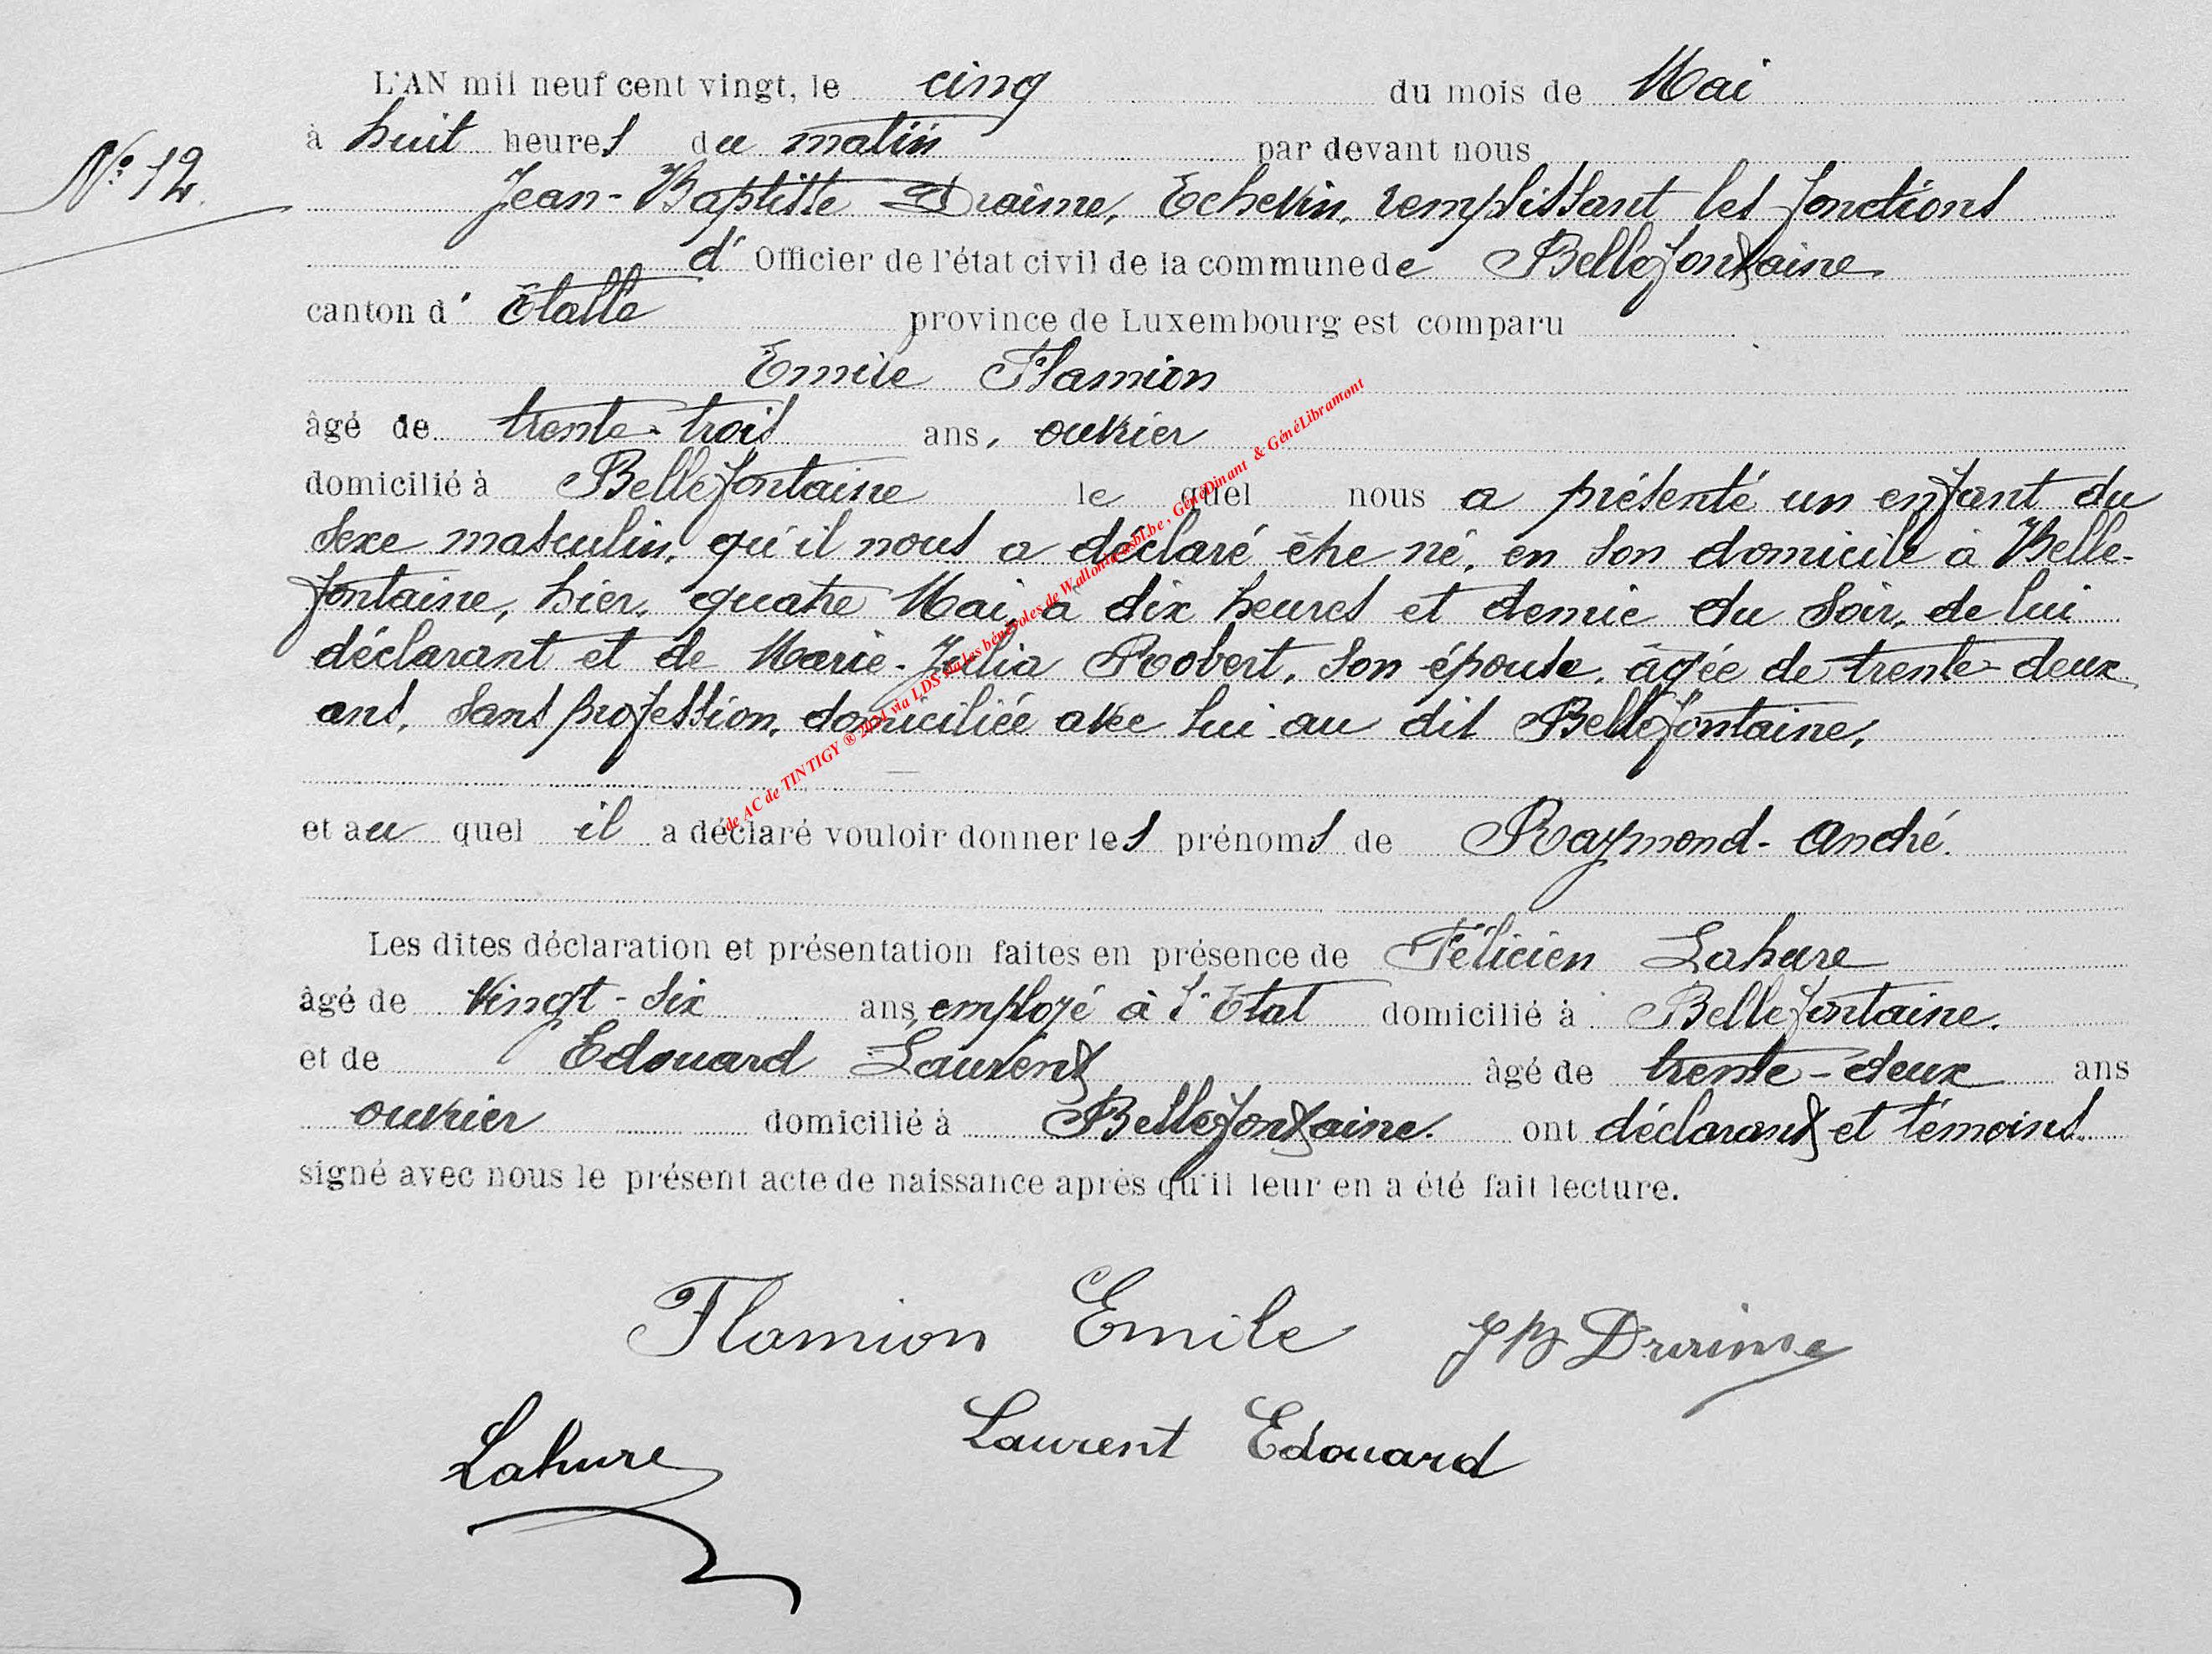 L'AN mil neuf cent vingt, le cinq du mois de Mai
à huit heures du matin par devant nous
N° 12.
Jean-Baptiste Draime, Echevin, remplissant les fonctions
d' Officier de l'état civil de la commune de Bellefontaine
canton d' Etalle province de Luxembourg est comparu
Emile Flamion
âgé de trente-trois ans, ouvrier
domicilié à Bellefontaine le quel nous a présenté un enfant du
sexe masculin, qu'il nous a déclaré être né, en son domicile à Belle-
fontaine, hier, quatre Mai, à dix heures et demie du soir, de lui
déclarant et de Marie-Julia Roobert, son épouse, âgée de trente-deux
ans, sans profession, domiciliée avec lui au dit Bellefontaine,
et au quel il a déclaré vouloir donner les prénoms de Raymond-André.
Les dites déclaration et présentation faites en présence de Félicien Lahure
âgé de vingt-six ans, employé à l'Etat domicilié à Bellefontaine.
et de Edouard Laurent âgé de trente-deux ans
ouvrier domicilié à Bellefontaine. ont déclarant et témoins
signé avec nous le présent acte de naissance après qu'il leur en a été fait lecture.
Flamion Emile JB Draime
Lahure Laurent Edouard
de AC de TINTIGY ® 2021 via LDS via les bénévoles de Wallonia asbl.be, GénéDinant & GénéLibramont